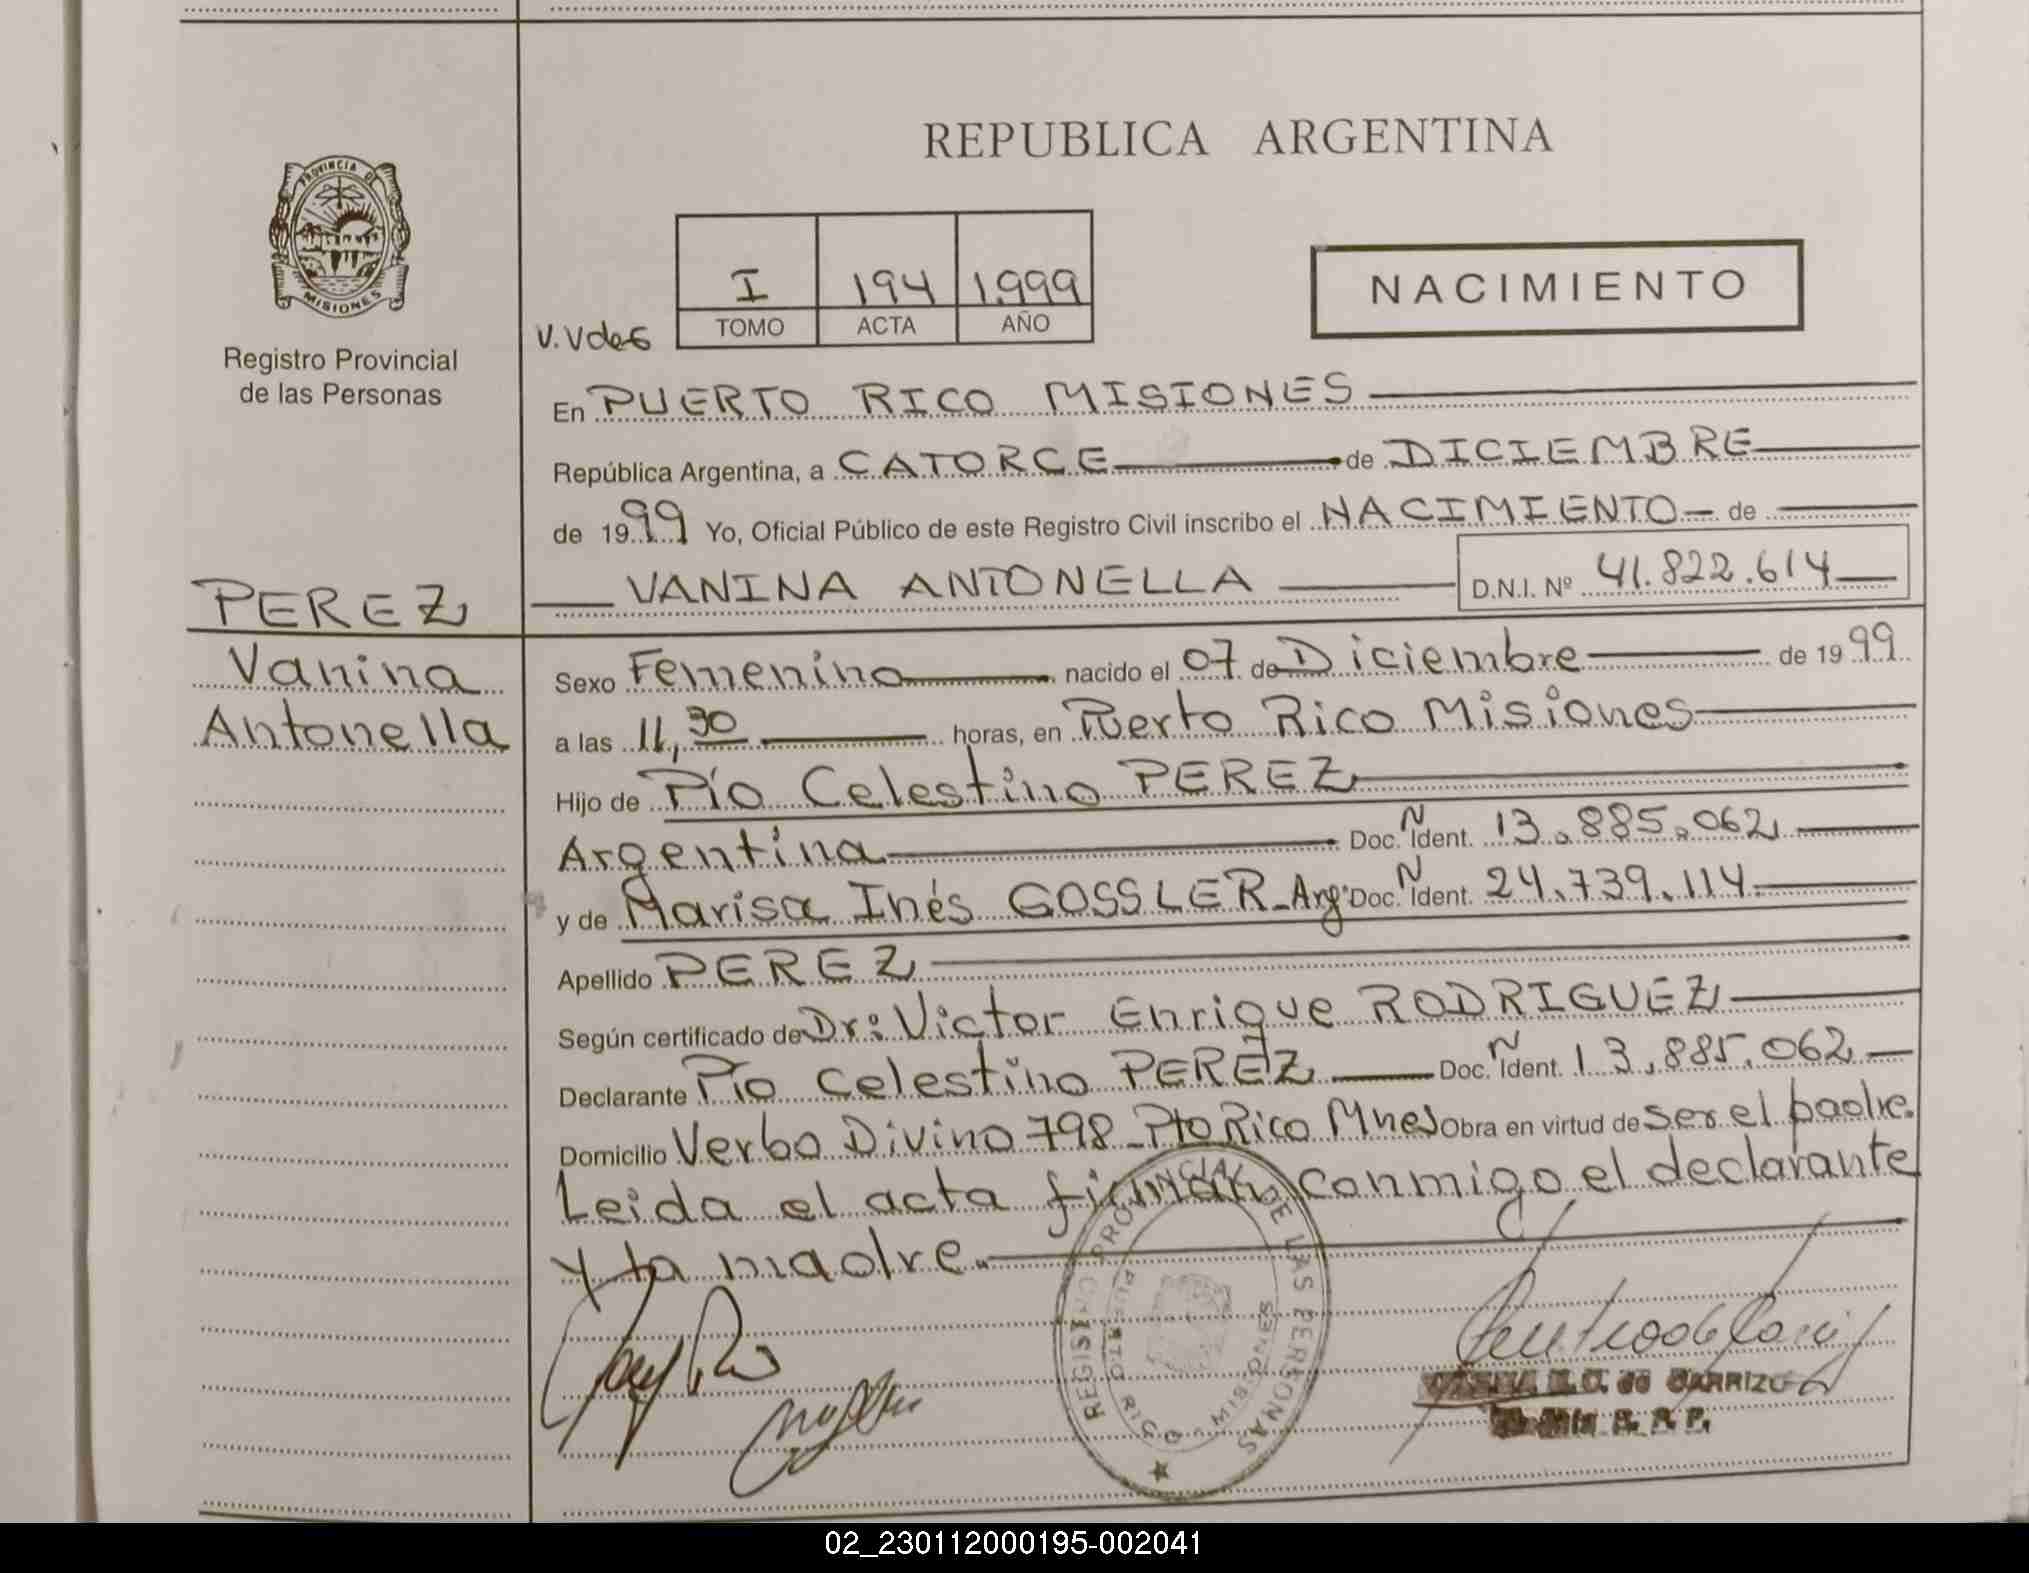 PROVINCIA DE
MISIONES
Registro Provincial
de las Personas
REPUBLICA ARGENTINA
I 194 1.999
TOMO ACTA AÑO
NACIMIENTO
En PUERTO RICO MISIONES
República Argentina, a CATORCE de DICIEMBRE
de 1999 Yo, Oficial Público de este Registro Civil inscribo el NACIMIENTO de
VANINA ANTONELLA D.N.I. Nº 41.822.614
PEREZ
Vanina
Antonella
Sexo Femenino nacido el 07 de Diciembre de 1999
a las 11,30 horas, en Puerto Rico Misiones
Hijo de Pío Celestino PEREZ
Argentina Doc. N Ident. 13.885.062
y de Marisa Inés GOSSLER - Arg. Doc. N Ident. 24.739.114
Apellido PEREZ
Según certificado de Dr: Victor Enrique RODRIGUEZ
Declarante Pío Celestino PEREZ Doc. N Ident. 13.885.062
Domicilio Verbo Divino 798 - Pto Rico Mnes Obra en virtud de ser el padre.
Leida el acta firman conmigo el declarante
y la madre.
REGISTRO PROVINCIAL DE LAS PERSONAS
PUERTO RICO MISIONES
de CARRIZO
R. P. P.
02_230112000195-002041